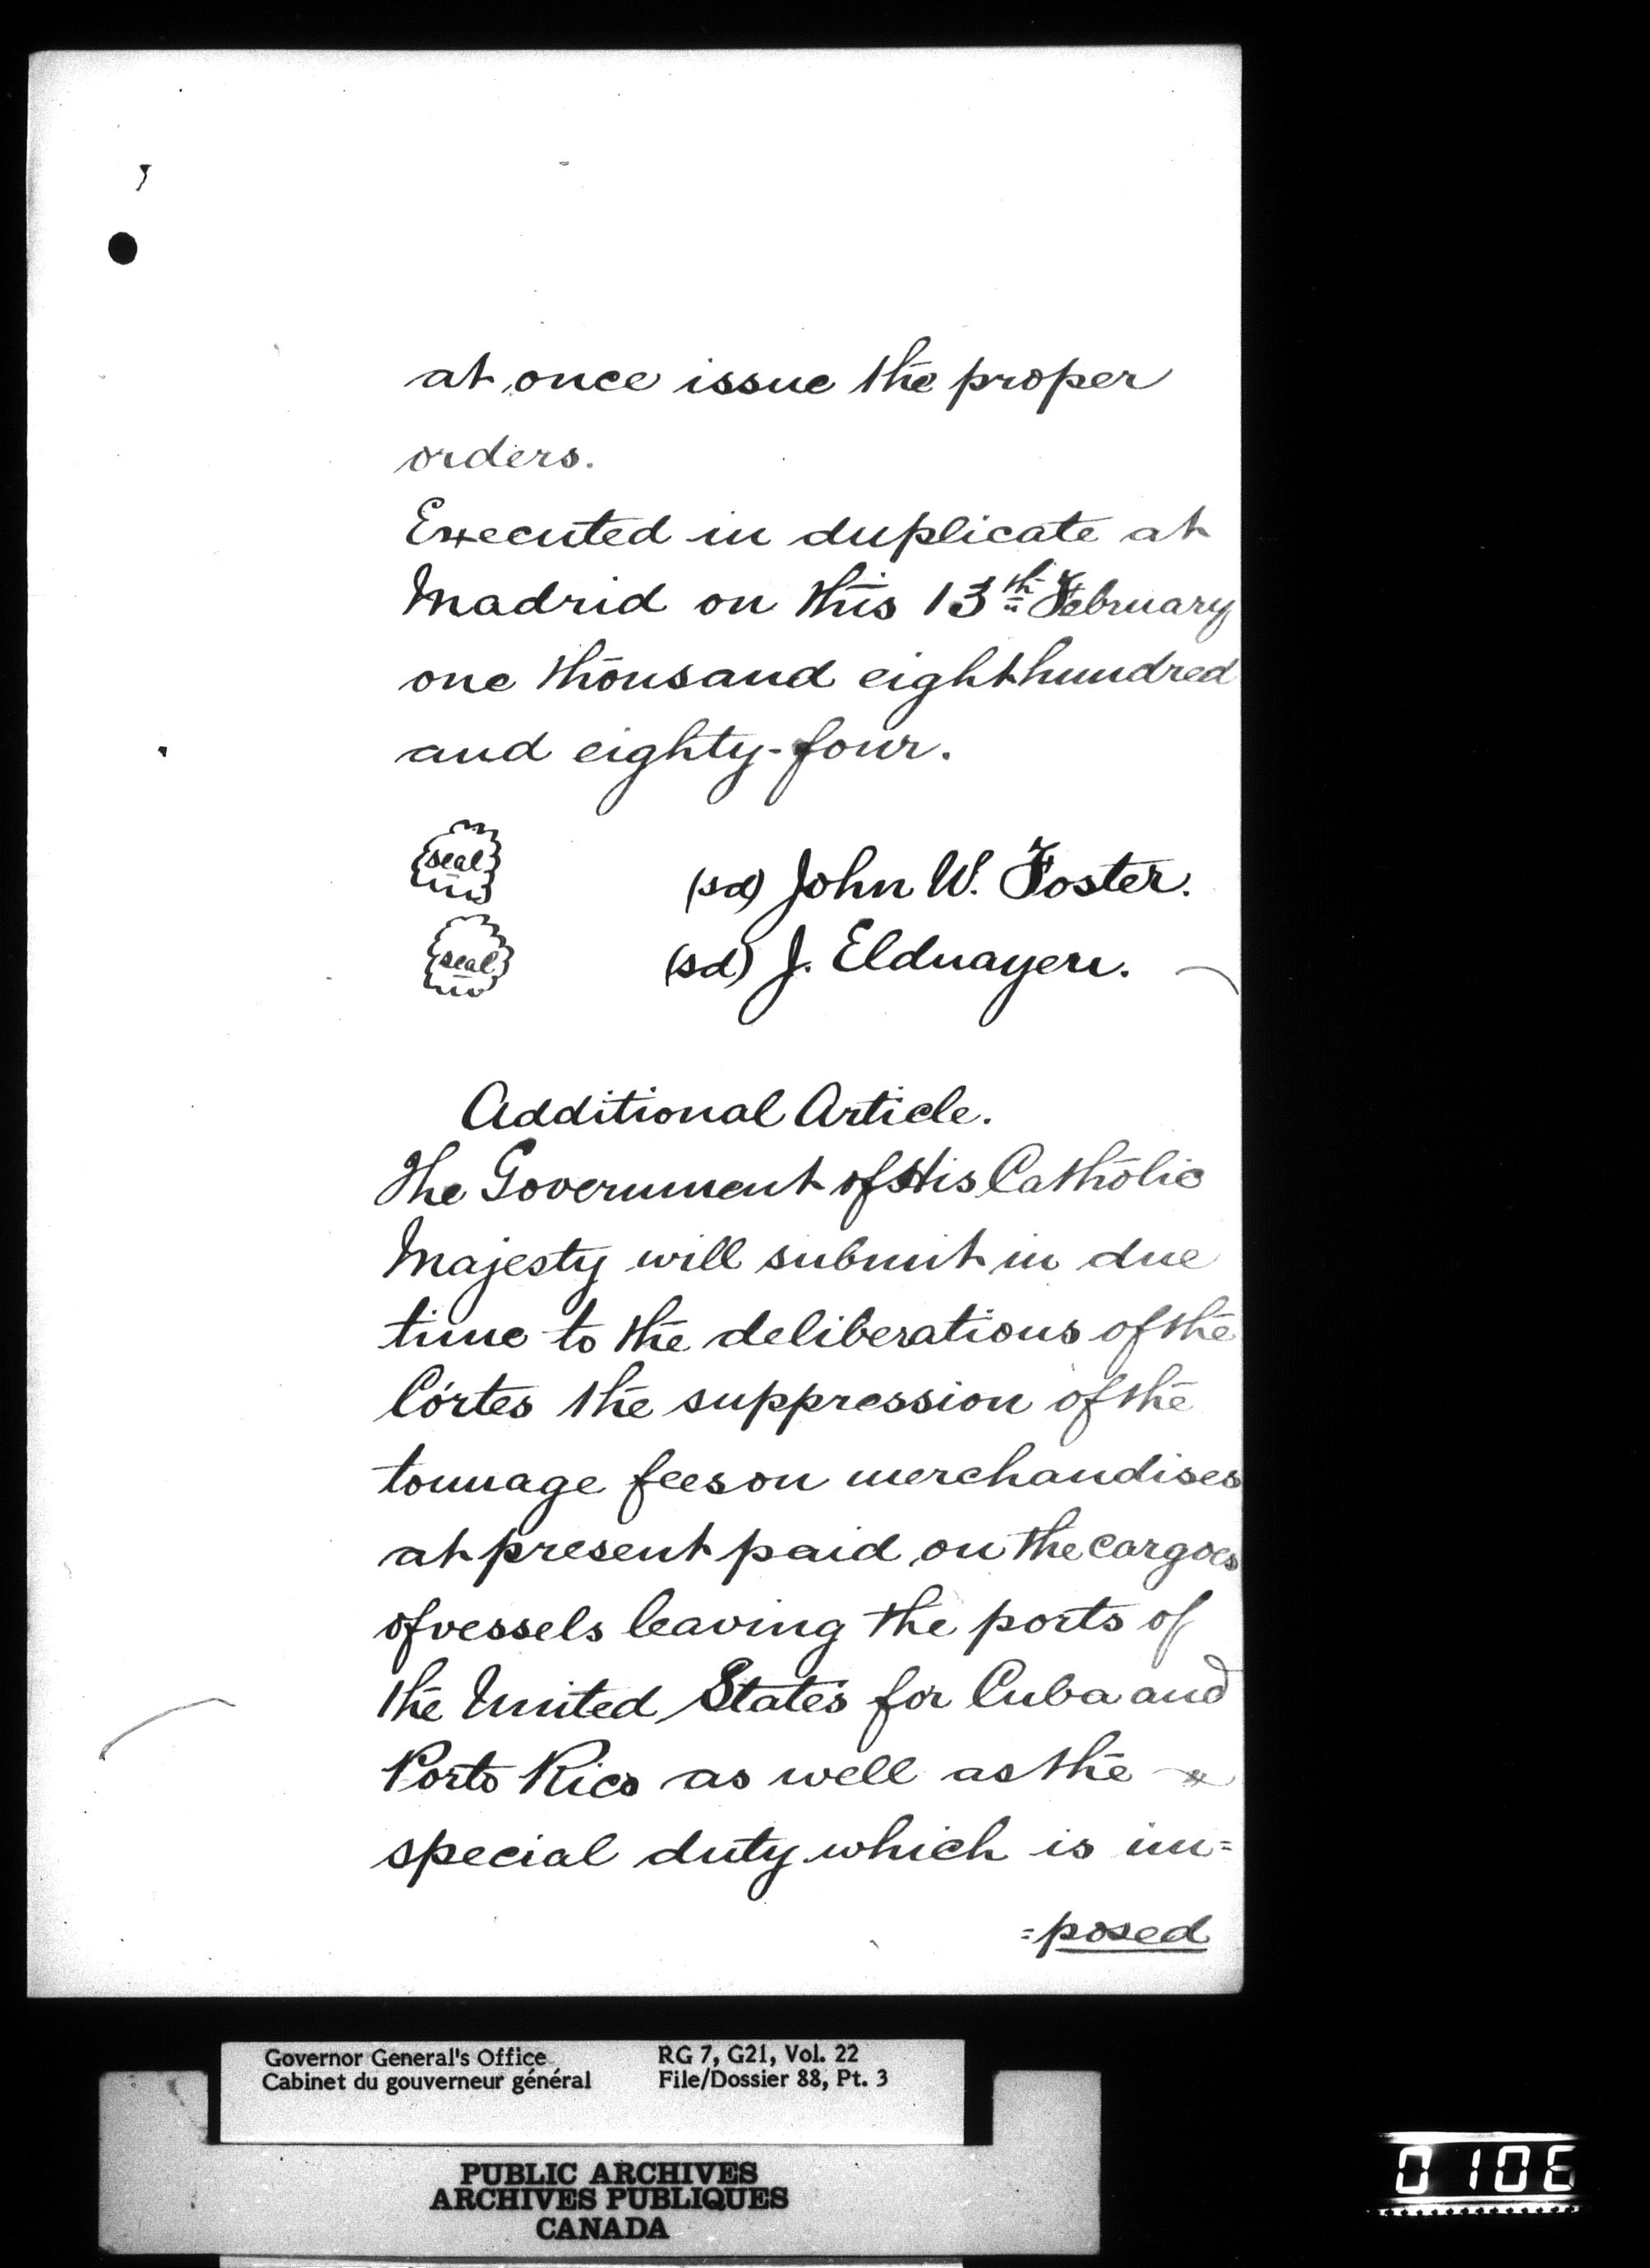 at once issue the proper
orders.
Executed in duplicate at
Madrid on this 13th February
one thousand eight hundred
and eighty-four.
seal
(sd) John W. Foster.
seal
(sd) J. Elduayen.
Additional Article.
The Government of His Catholic
Majesty will submit in due
time to the deliberations of the
Córtes the suppression of the
tonnage fees on merchandises
at present paid on the cargoes
of vessels leaving the ports of
the United States for Cuba and
Porto Rico as well as the
special duty which is im=
=posed
Governor General's Office RG 7, G21, Vol. 22
Cabinet du gouverneur général File/Dossier 88, Pt. 3
PUBLIC ARCHIVES
ARCHIVES PUBLIQUES
CANADA
0106